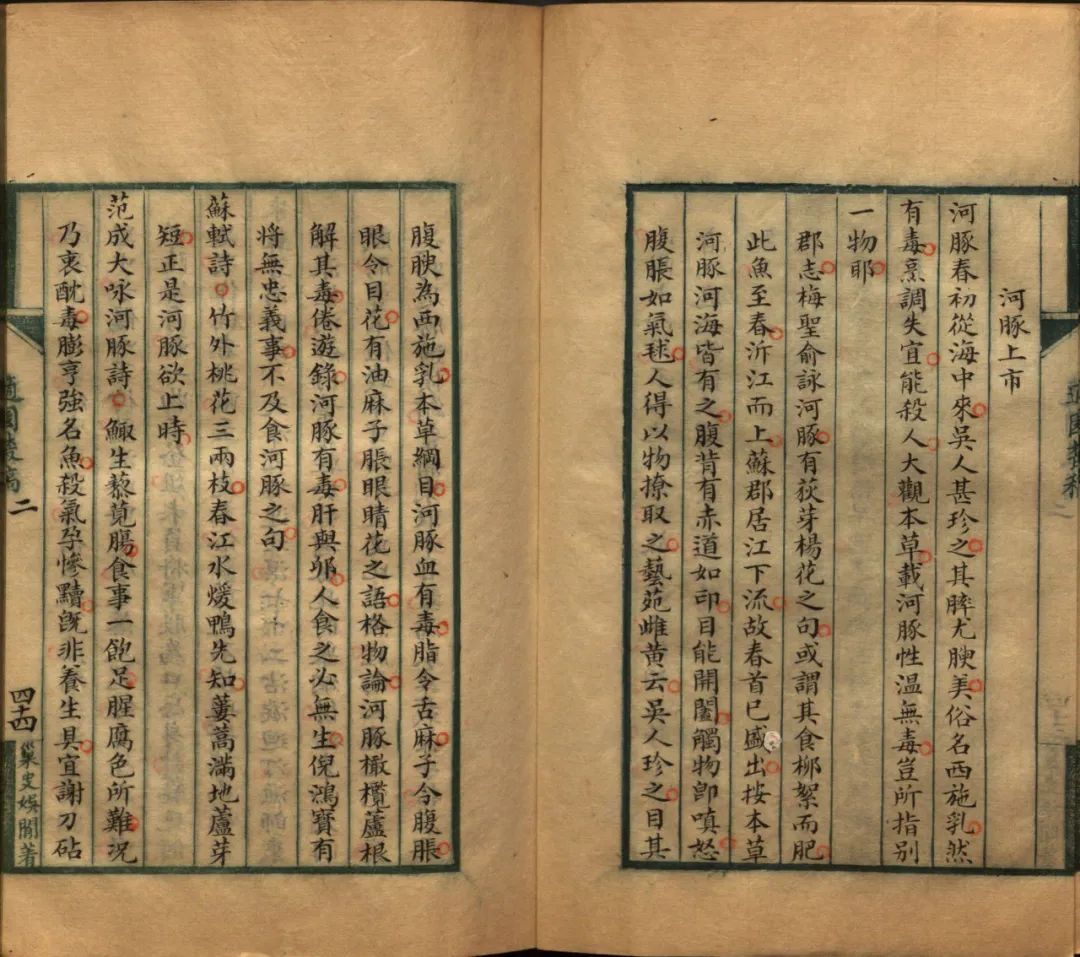 河豚上市
河豚春初從海中來吳人甚珍之其脺尤腴美俗名西施乳然
有毒烹調失宜能殺人大觀本草載河豚性温無毒豈所指别
一物耶
郡志梅聖俞詠河豚有荻芽楊花之句或謂其食柳絮而肥
此魚至春泝江而上蘇郡居江下流故春首已盛出按本草
河豚河海皆有之腹背有赤道如印目能開闔觸物卽嗔怒
腹脹如氣毬人得以物撩取之藝苑雌黄云吳人珍之目其
腹腴為西施乳本草綱目河豚血有毒脂令舌麻子令腹脹
眼令目花有油麻子脹眼睛花之語格物論河豚橄欖蘆根
解其毒倦遊錄河豚有毒肝與卵人食之必無生倪鴻寶有
將無忠義事不及食河豚之句
蘇軾詩竹外桃花三兩枝春江水煖鴨先知蔞蒿滿地蘆芽
短正是河豚欲上時
范成大咏河豚詩鯫生藜莧腸食事一飽足腥腐色所難况
乃衷酖毒膨亨強名魚殺氣孕慘黷旣非養生具宜謝刀砧
二
四十四
巢叟娛閒著